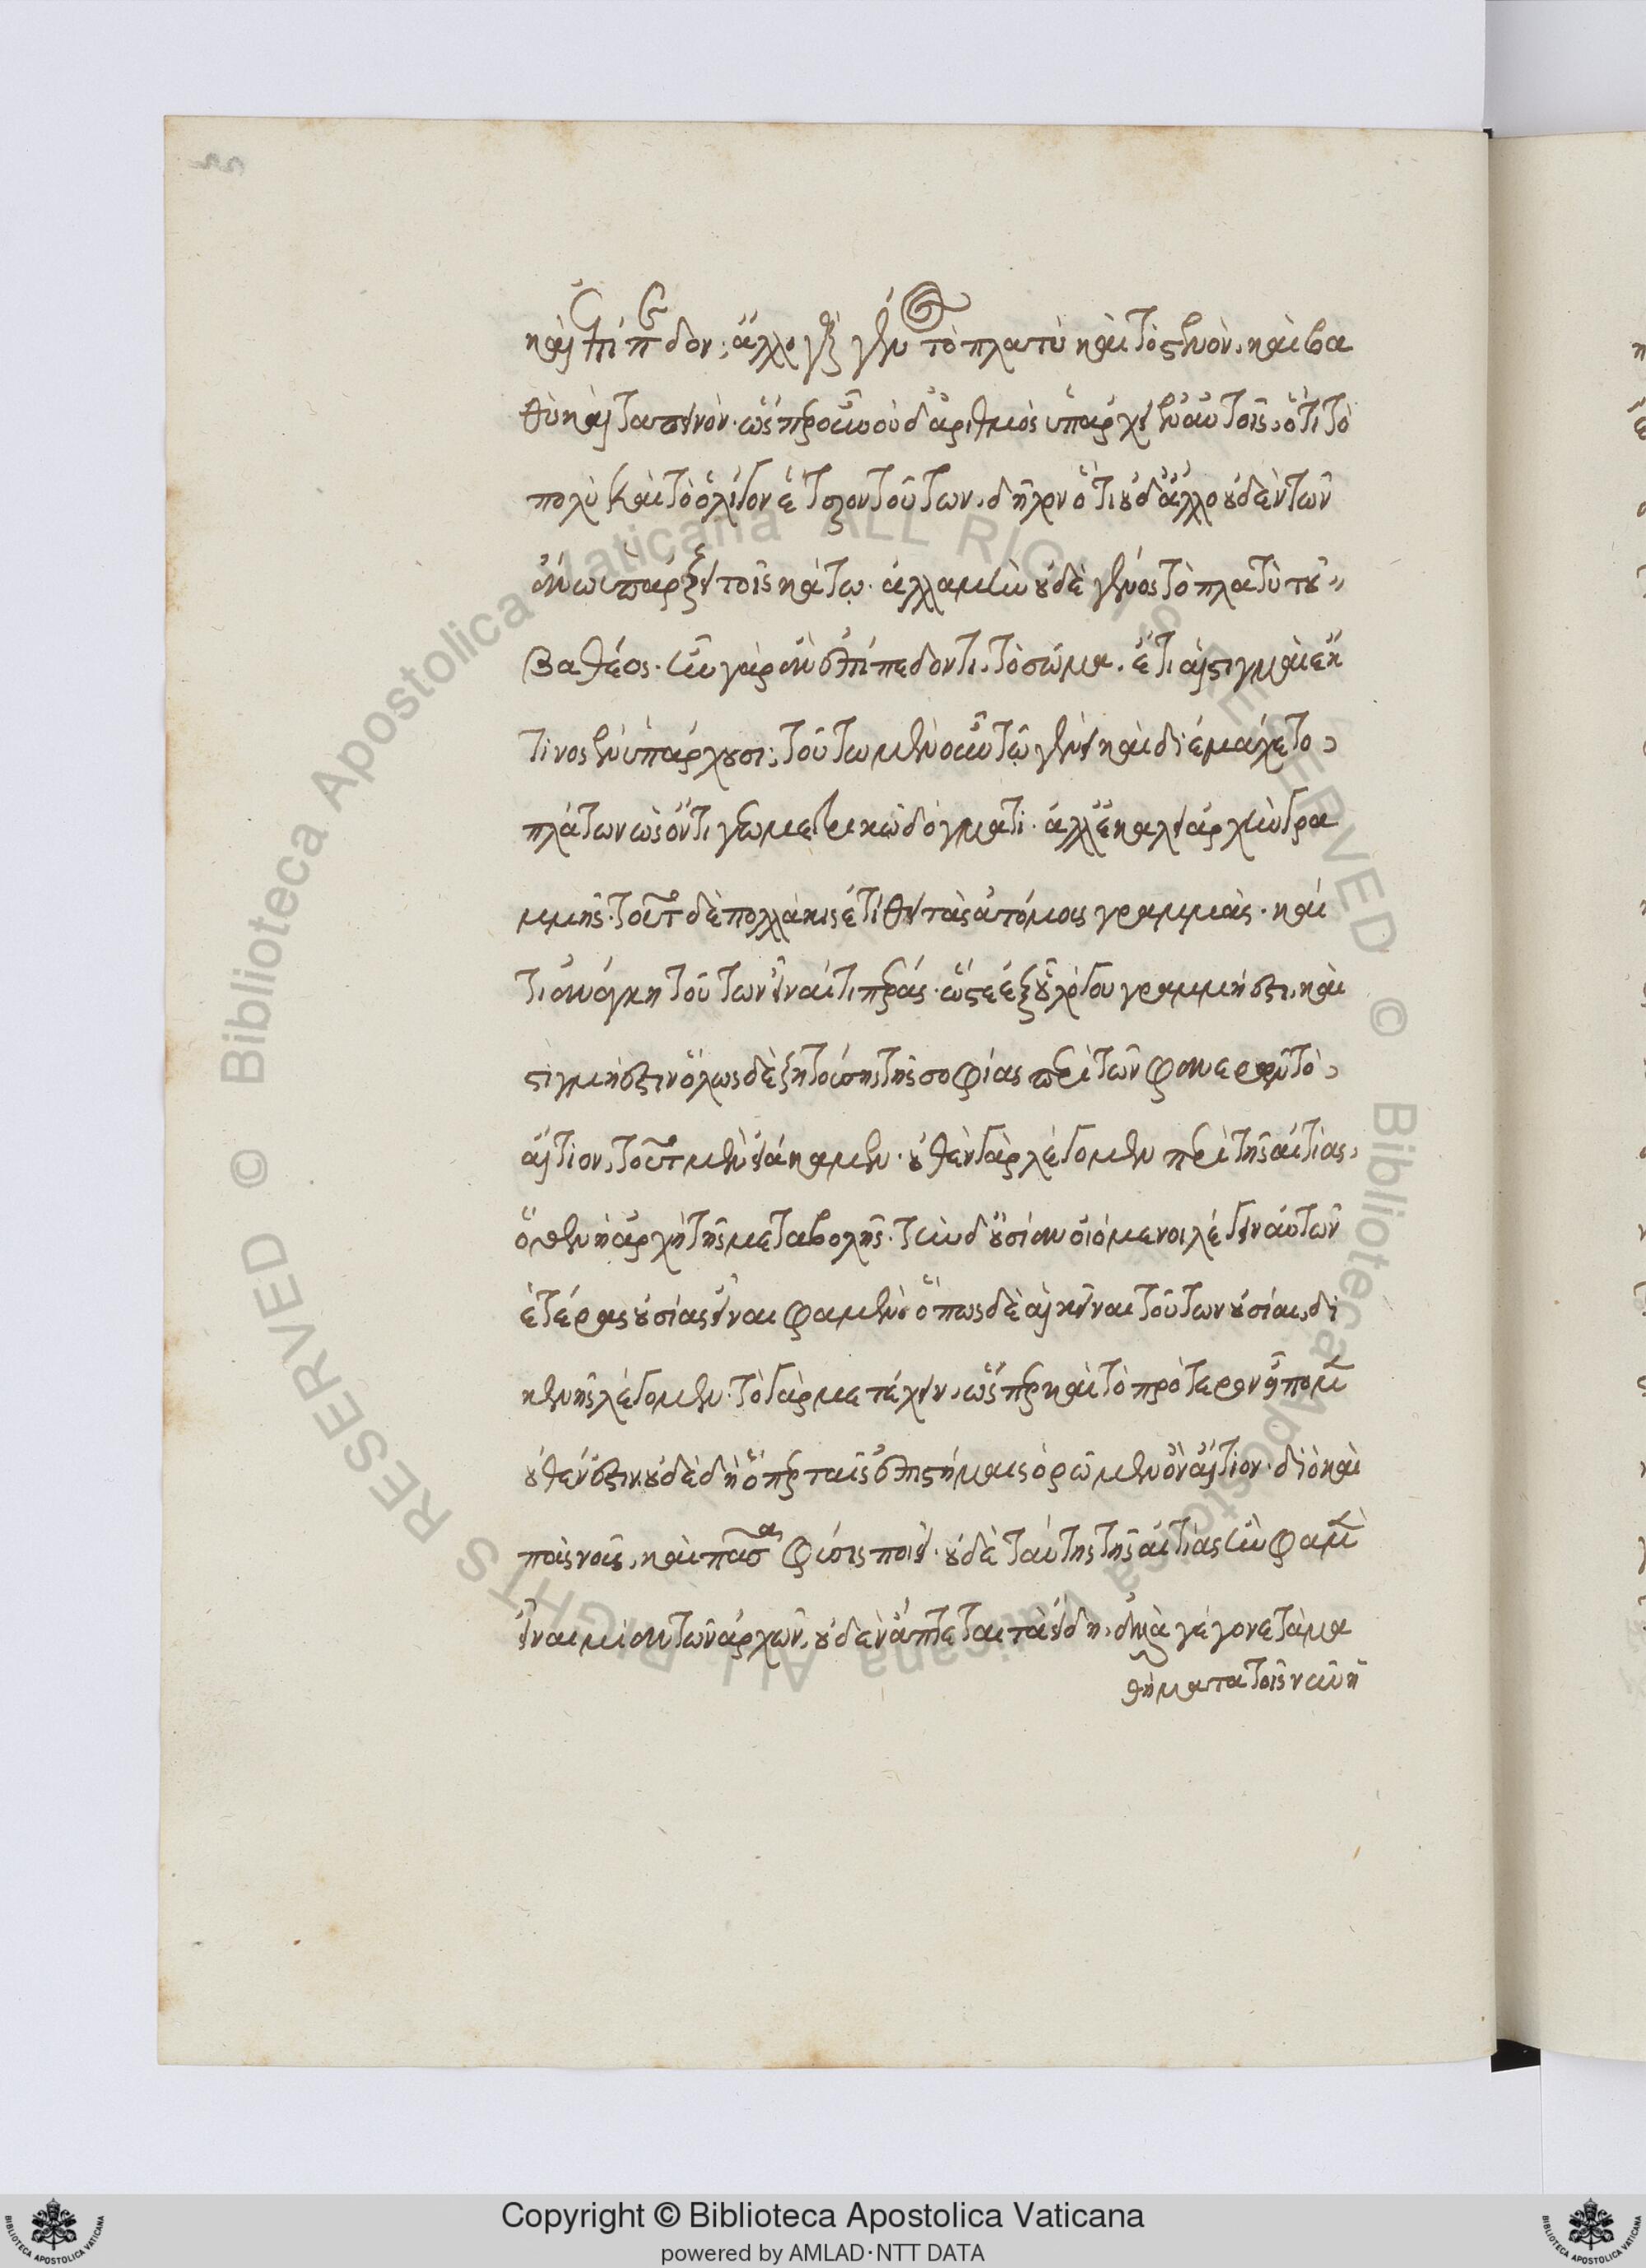 καὶ ἐπίπεδον; ἄλλο γὰρ γένος τὸ πλατὺ καὶ τὸ στενὸν, καὶ βα
θὺ καὶ ταπεινόν. ὥσπερ οὖν οὐδ' ἀριθμὸς ὑπάρχει ἐν αὐτοῖς, ὅτι τὸ
πολὺ καὶ τὸ ὀλίγον ἕτερον τούτων. δῆλον ὅτι οὐδ' ἄλλο οὐδὲν τῶν
ἄνω ὑπάρξει τοῖς κάτω. ἀλλὰ μὴν οὐδὲ γένος τὸ πλατὺ τοῦ
βαθέος. ἦν γὰρ ἂν ἐπίπεδόν τι τὸ σῶμα. ἔτι αἱ στιγμαὶ ἐκ
τίνος ἐνυπάρχουσι; τούτῳ μὲν οὖν τῷ γένει καὶ διεμάχετο
πλάτων ὡς ὄντι γεωμετρικῷ δόγματι. ἀλλ' ἐκάλει ἀρχὴν γρα
μμῆς. τοῦτο δὲ πολλάκις ἐτίθει τὰς ἀτόμους γραμμὰς. καί
τι ἀνάγκη τούτων εἶναί τι πέρας. ὥστε ἐξ οὗ λόγου γραμμή ἐστι, καὶ
στιγμή ἐστιν ὅλως δὲ ζητούσης τῆς σοφίας περὶ τῶν φανερῶν τὸ
αἴτιον, τοῦτο μὲν εἰάκαμεν. οὐθὲν γὰρ λέγομεν περὶ τῆς αἰτίας,
ὅθεν ἡ ἀρχὴ τῆς μεταβολῆς. τὴν δ' οὐσίαν οἰόμενοι λέγειν αὐτῶν
ἑτέρας οὐσίας εἶναι φαμέν. ὅπως δὲ αἱ κεῖναι τούτων οὐσίαι, δι
κενῆς λέγομεν. τὸ γὰρ μετέχειν, ὥσπερ καὶ τὸ πρότερον εἴπομεν
οὐθέν ἐστιν. οὐδὲ δὴ ὅπερ ταῖς ἐπιστήμαις ὁρῶμεν ὂν αἴτιον. διὸ καὶ
πᾶς νοῦς, καὶ πᾶσα φύσις ποιεῖ. οὐδὲ ταύτης τῆς αἰτίας ἣν φαμὲν
εἶναι μίαν τῶν ἀρχῶν, οὐδὲν ἅπτεται τὰ εἴδη, ἀλλὰ γέγονε τὰ μα
θήματα τοῖς νῦν ἡ